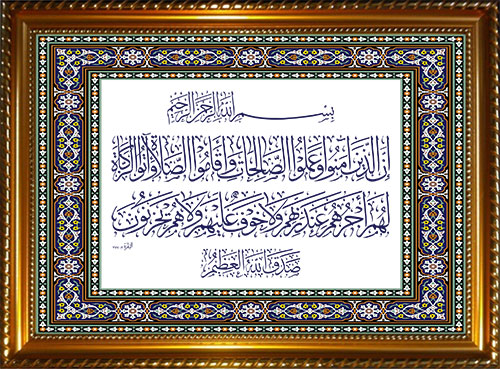 بسم الله الرحمن الرحيم
إن الذين آمنوا وعملوا الصالحات وأقاموا الصلاة وآتوا الزكاة
لهم أجرهم عند ربهم ولا خوف عليهم ولا هم يحزنون
صدق الله العظيم